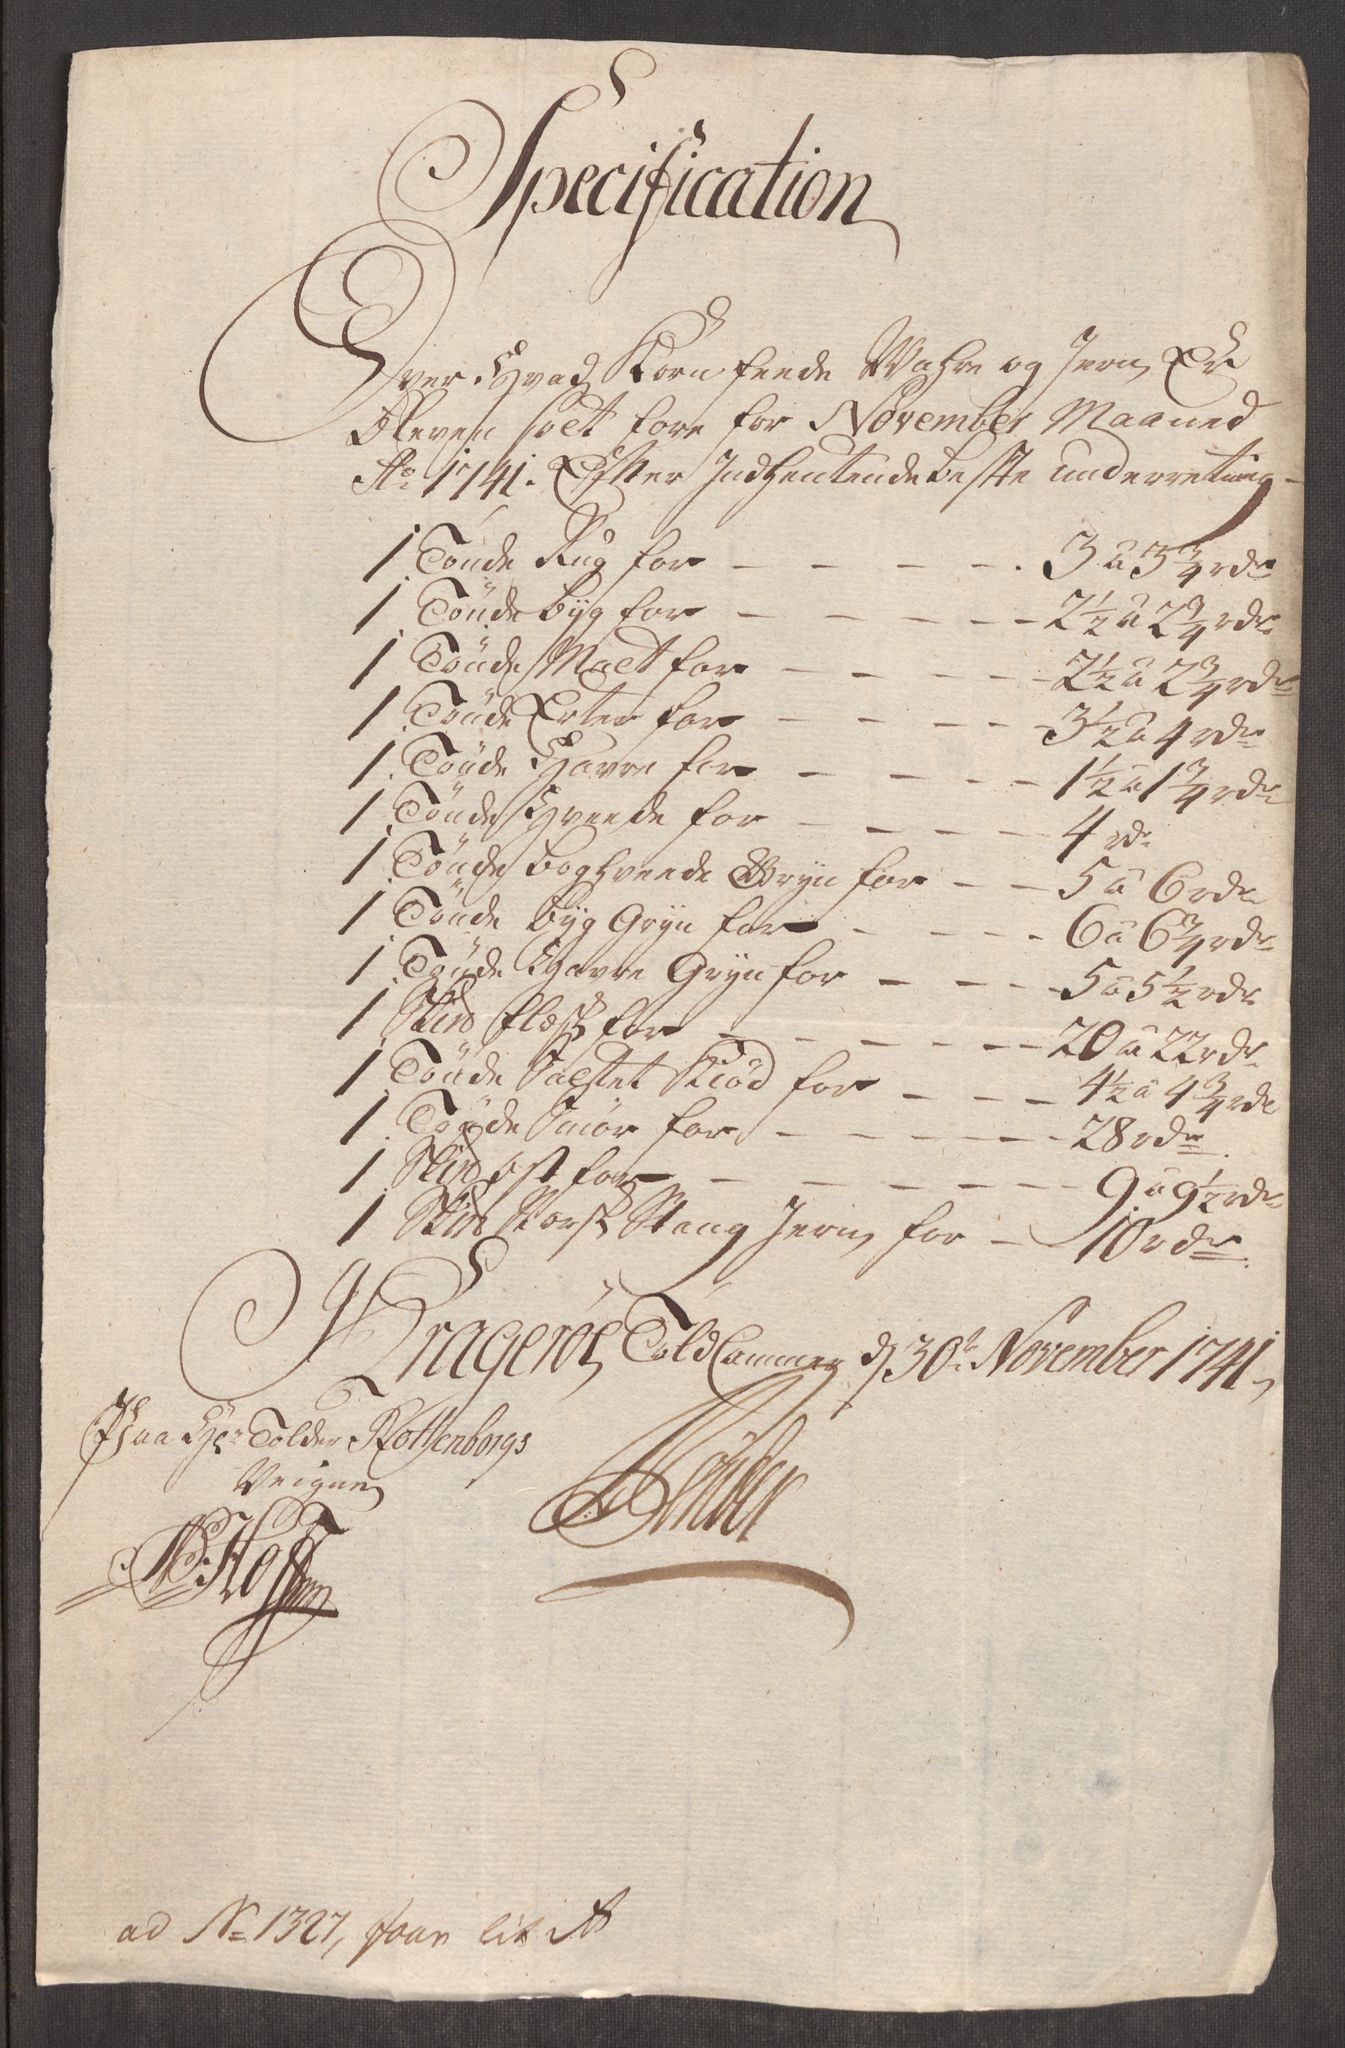 Specification
Over Hvad Korn feede Wahre og Jern Er
Bleven solt fore for November Maaned
Ao 1741. Efter Indhentende beste underretning
1 Tönde Rug for — — — — — 3 a 3 3/4 rdr
1 Tönde Byg for — — — — — 2 1/2 a 2 3/4 rdr
1 Tönde Malt for — — — — 2 1/2 a 2 3/4 rdr
1 Tönde Erter for — — — — 3 1/2 a 4 rdr
1 Tönde Havre for — — — — 1 1/2 a 1 3/4 rdr
1 Tönde Hveede for — — — — 4 rdr
1 Tönde boghveede Gryn for — — 5 a 6 rdr
1 Tönde byg Gryn for — — — 6 a 6 3/4 rdr
1 Tönde Havre Gryn for — — — 5 a 5 1/2 rdr
1 Skind flesk for — — — — — 20 a 22 rdr
1 Tönde Saltet Kiöd for — — — 4 1/2 a 4 3/4 rdr
1 Tönde Smör for — — — — — 28 rdr
1 ost for — — — — — 9 a 9 1/2 rdr
1 Norsk Stang Jern for — 10 rdr
Kragerøe Told Cammer d 30te November 1741
Paa Hr Tolder Rottenborgs
Veigne
ad No 1327, lit A